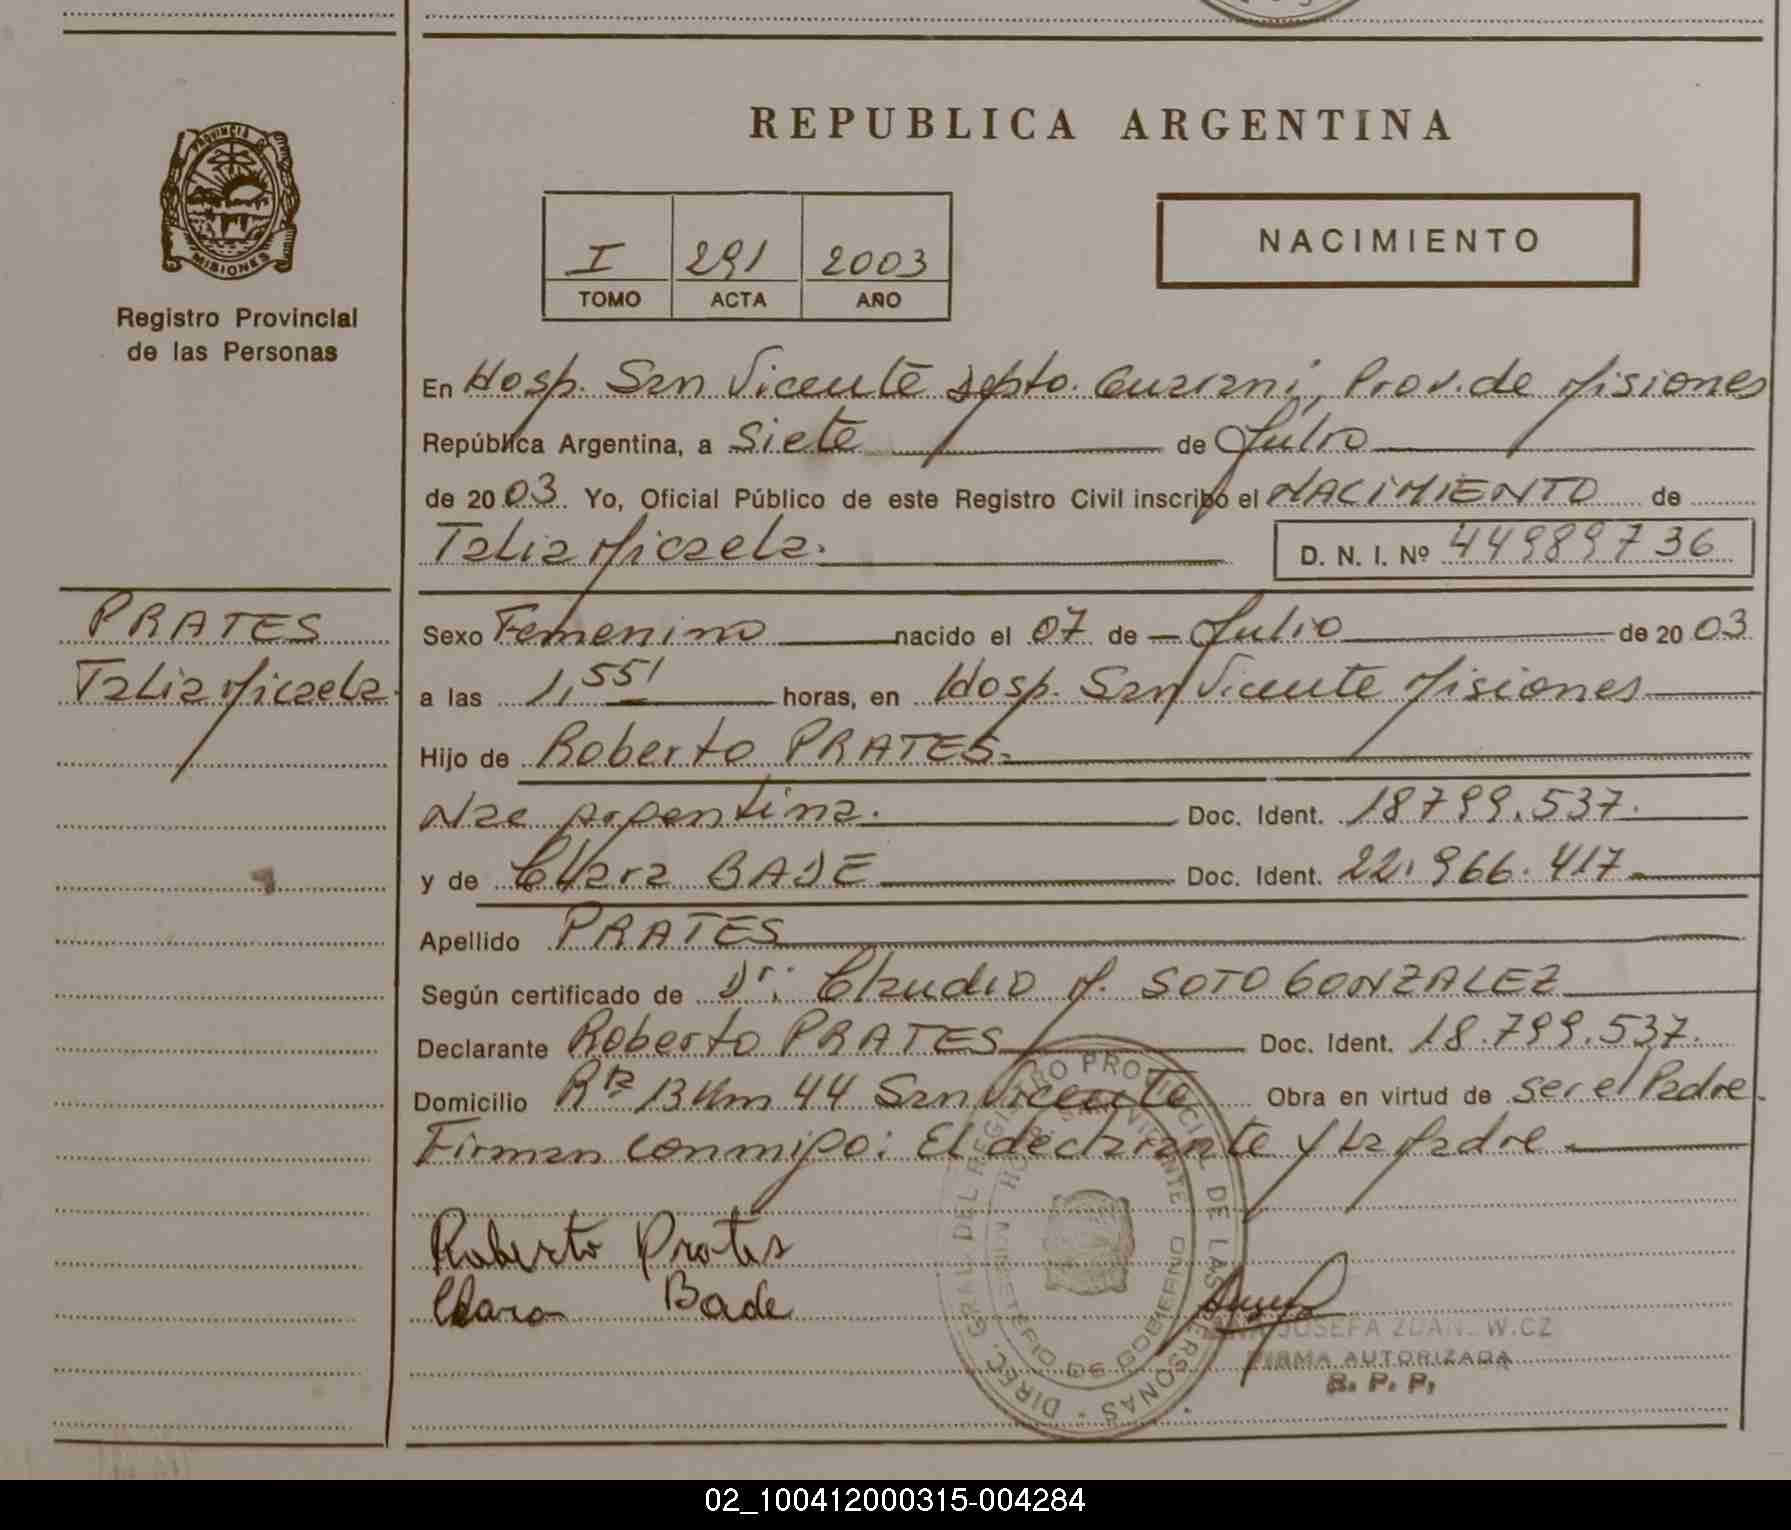 PROVINCIA DE
MISIONES
Registro Provincial
de las Personas
PRATES
Talia Micaela
REPUBLICA ARGENTINA
I 291 2003
TOMO ACTA AÑO
NACIMIENTO
En Hosp. San Vicente Dpto. Guarani, Prov. de Misiones
República Argentina, a Siete de Julio
de 2003. Yo, Oficial Público de este Registro Civil inscribo el NACIMIENTO de
Talia Micaela. D. N. I. Nº 44989736
Sexo Femenino nacido el 07 de Julio de 2003
a las 1,55' horas, en Hosp. San Vicente Misiones
Hijo de Roberto PRATES.
Nac argentina. Doc. Ident. 18799.537.
y de Clara BADE Doc. Ident. 22.966.417.
Apellido PRATES
Según certificado de Dr. Claudio M. SOTO GONZALEZ
Declarante Roberto PRATES Doc. Ident. 18.799.537.
Domicilio Rta 13 Km 44 San Vicente Obra en virtud de ser el Padre.
Firman conmigo: El declarante y La Madre
Roberto Prates
Clara Bade
DIREC. GRAL. DEL REGISTRO PROVINCIAL DE LAS PERSONAS
MINISTERIO DE GOBIERNO
JOSEFA
FIRMA AUTORIZADA
R. P. P.
02_100412000315-004284